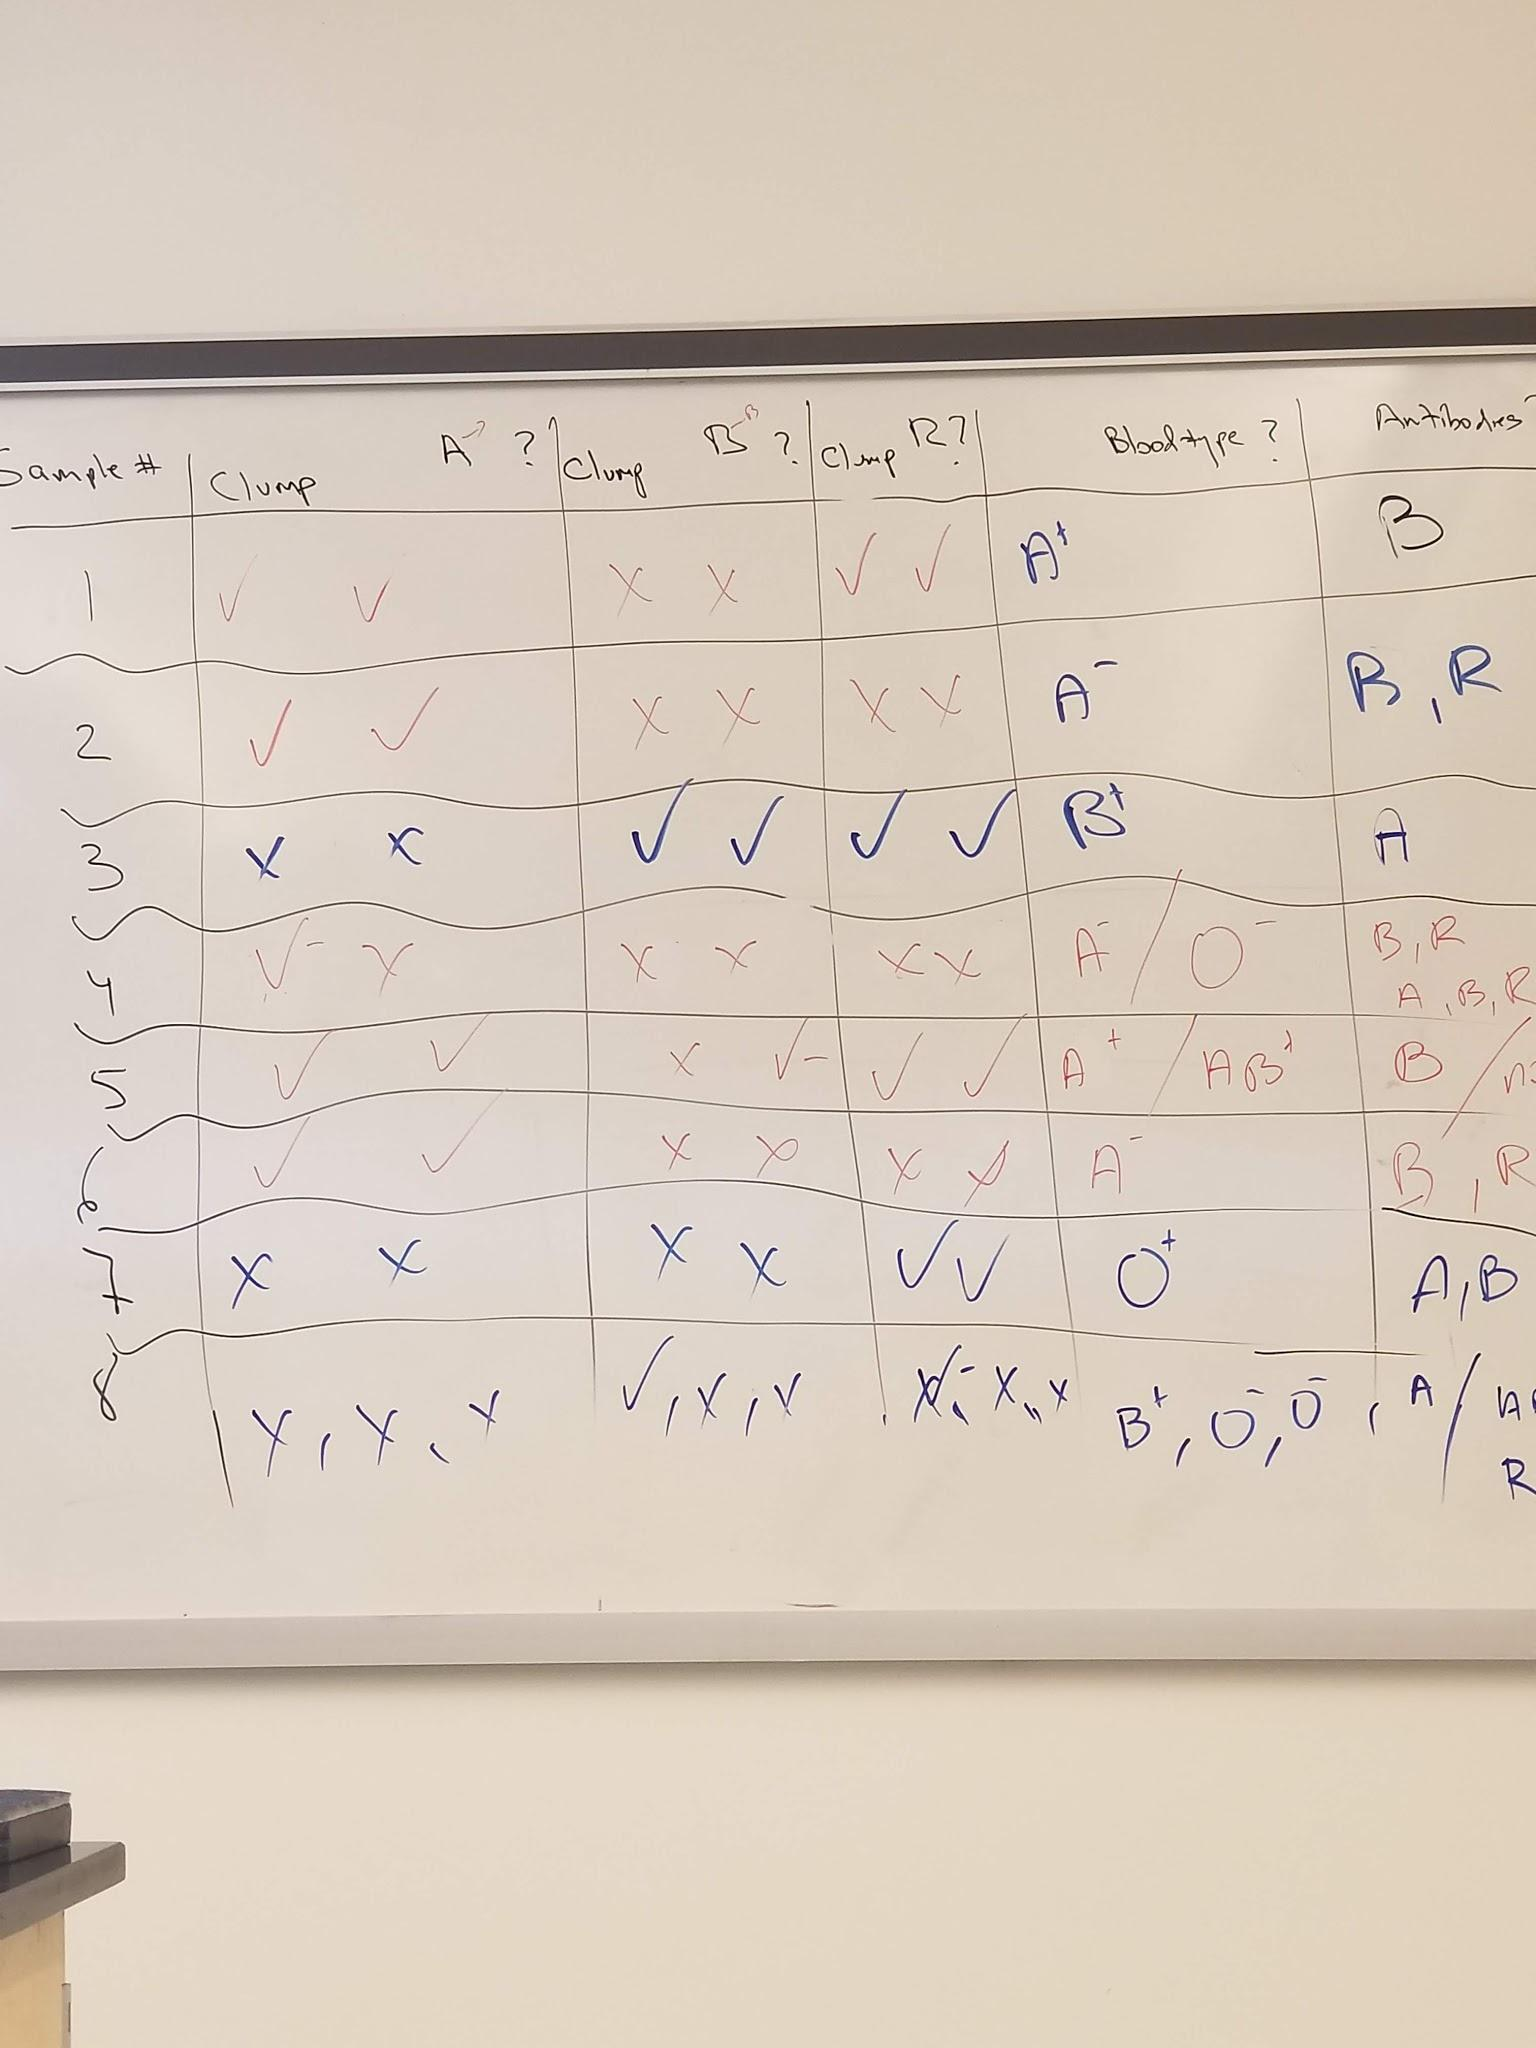 Sample # Clump A ? Clump B ? Clump R? Bloodtype ? Antibodies?
1 ✓ ✓ X X ✓ ✓ A+ B
2 ✓ ✓ X X X X A- B, R
3 X X ✓ ✓ ✓ ✓ B+ A
4 ✓- X X X X X A- / O- B, R
A, B, R
5 ✓ ✓ X ✓- ✓ ✓ A+ / AB+ B /
6 ✓ ✓ X X X X A- B, R
7 X X X X ✓ ✓ O+ A, B
8 X, X, X ✓, X, X X, X B+, O-, O-, A /
R